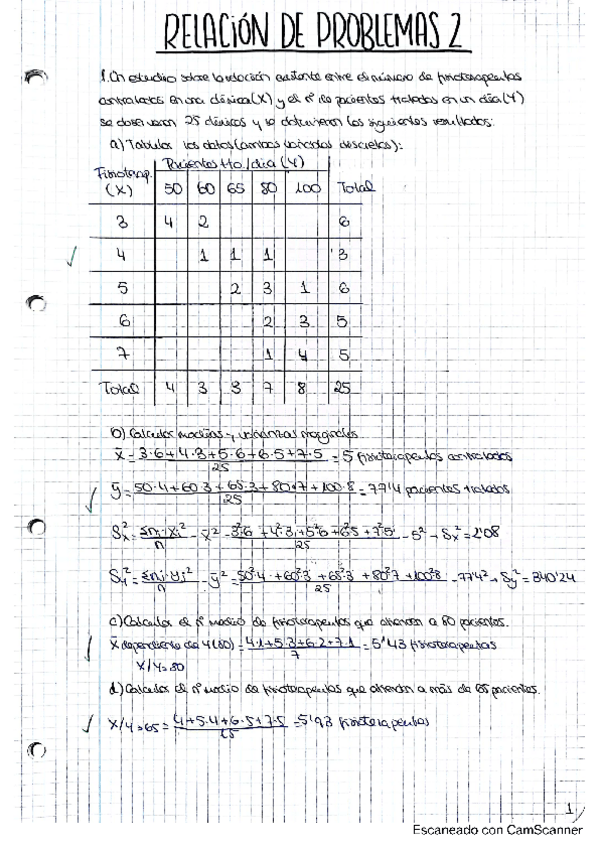 RELACIÓN DE PROBLEMAS 2
1. Un estudio sobre la relación existente entre el número de fisioterapeutas
contratados en una clínica (X) y el nº de pacientes tratados en un día (Y)
se observaron 25 clínicas y se obtuvieron los siguientes resultados:
a) Tabular los datos (ambas variables discretas):
Pacientes tto./día (Y)
Fisioterap. (X) 50 60 65 80 100 Total
3 4 2 6
4 1 1 1 3
5 2 3 1 6
6 2 3 5
7 1 4 5
Total 4 3 3 7 8 25
b) Calcular medias y varianzas marginales
x̄ = 3·6+4·3+5·6+6·5+7·5 / 25 = 5 fisioterapeutas contratados
ȳ = 50·4+60·3+65·3+80·7+100·8 / 25 = 77'4 pacientes tratados
Sx² = Σni·xi² / n - x̄² = 3²·6+4²·3+5²·6+6²·5+7²·5 / 25 - 5² → Sx² = 2'08
Sy² = Σnj·yj² / n - ȳ² = 50²·4+60²·3+65²·3+80²·7+100²·8 / 25 - 77'4² → Sy² = 340'24
c) Calcular el nº medio de fisioterapeutas que atienden a 80 pacientes.
x̄ dependiente de Y(80) = 4·1+5·3+6·2+7·1 / 7 = 5'43 fisioterapeutas
X/Y=80
d) Calcular el nº medio de fisioterapeutas que atienden a más de 65 pacientes.
X/Y>65 = 4+5·4+6·5+7·5 / 15 = 5'93 fisioterapeutas
1
Escaneado con CamScanner